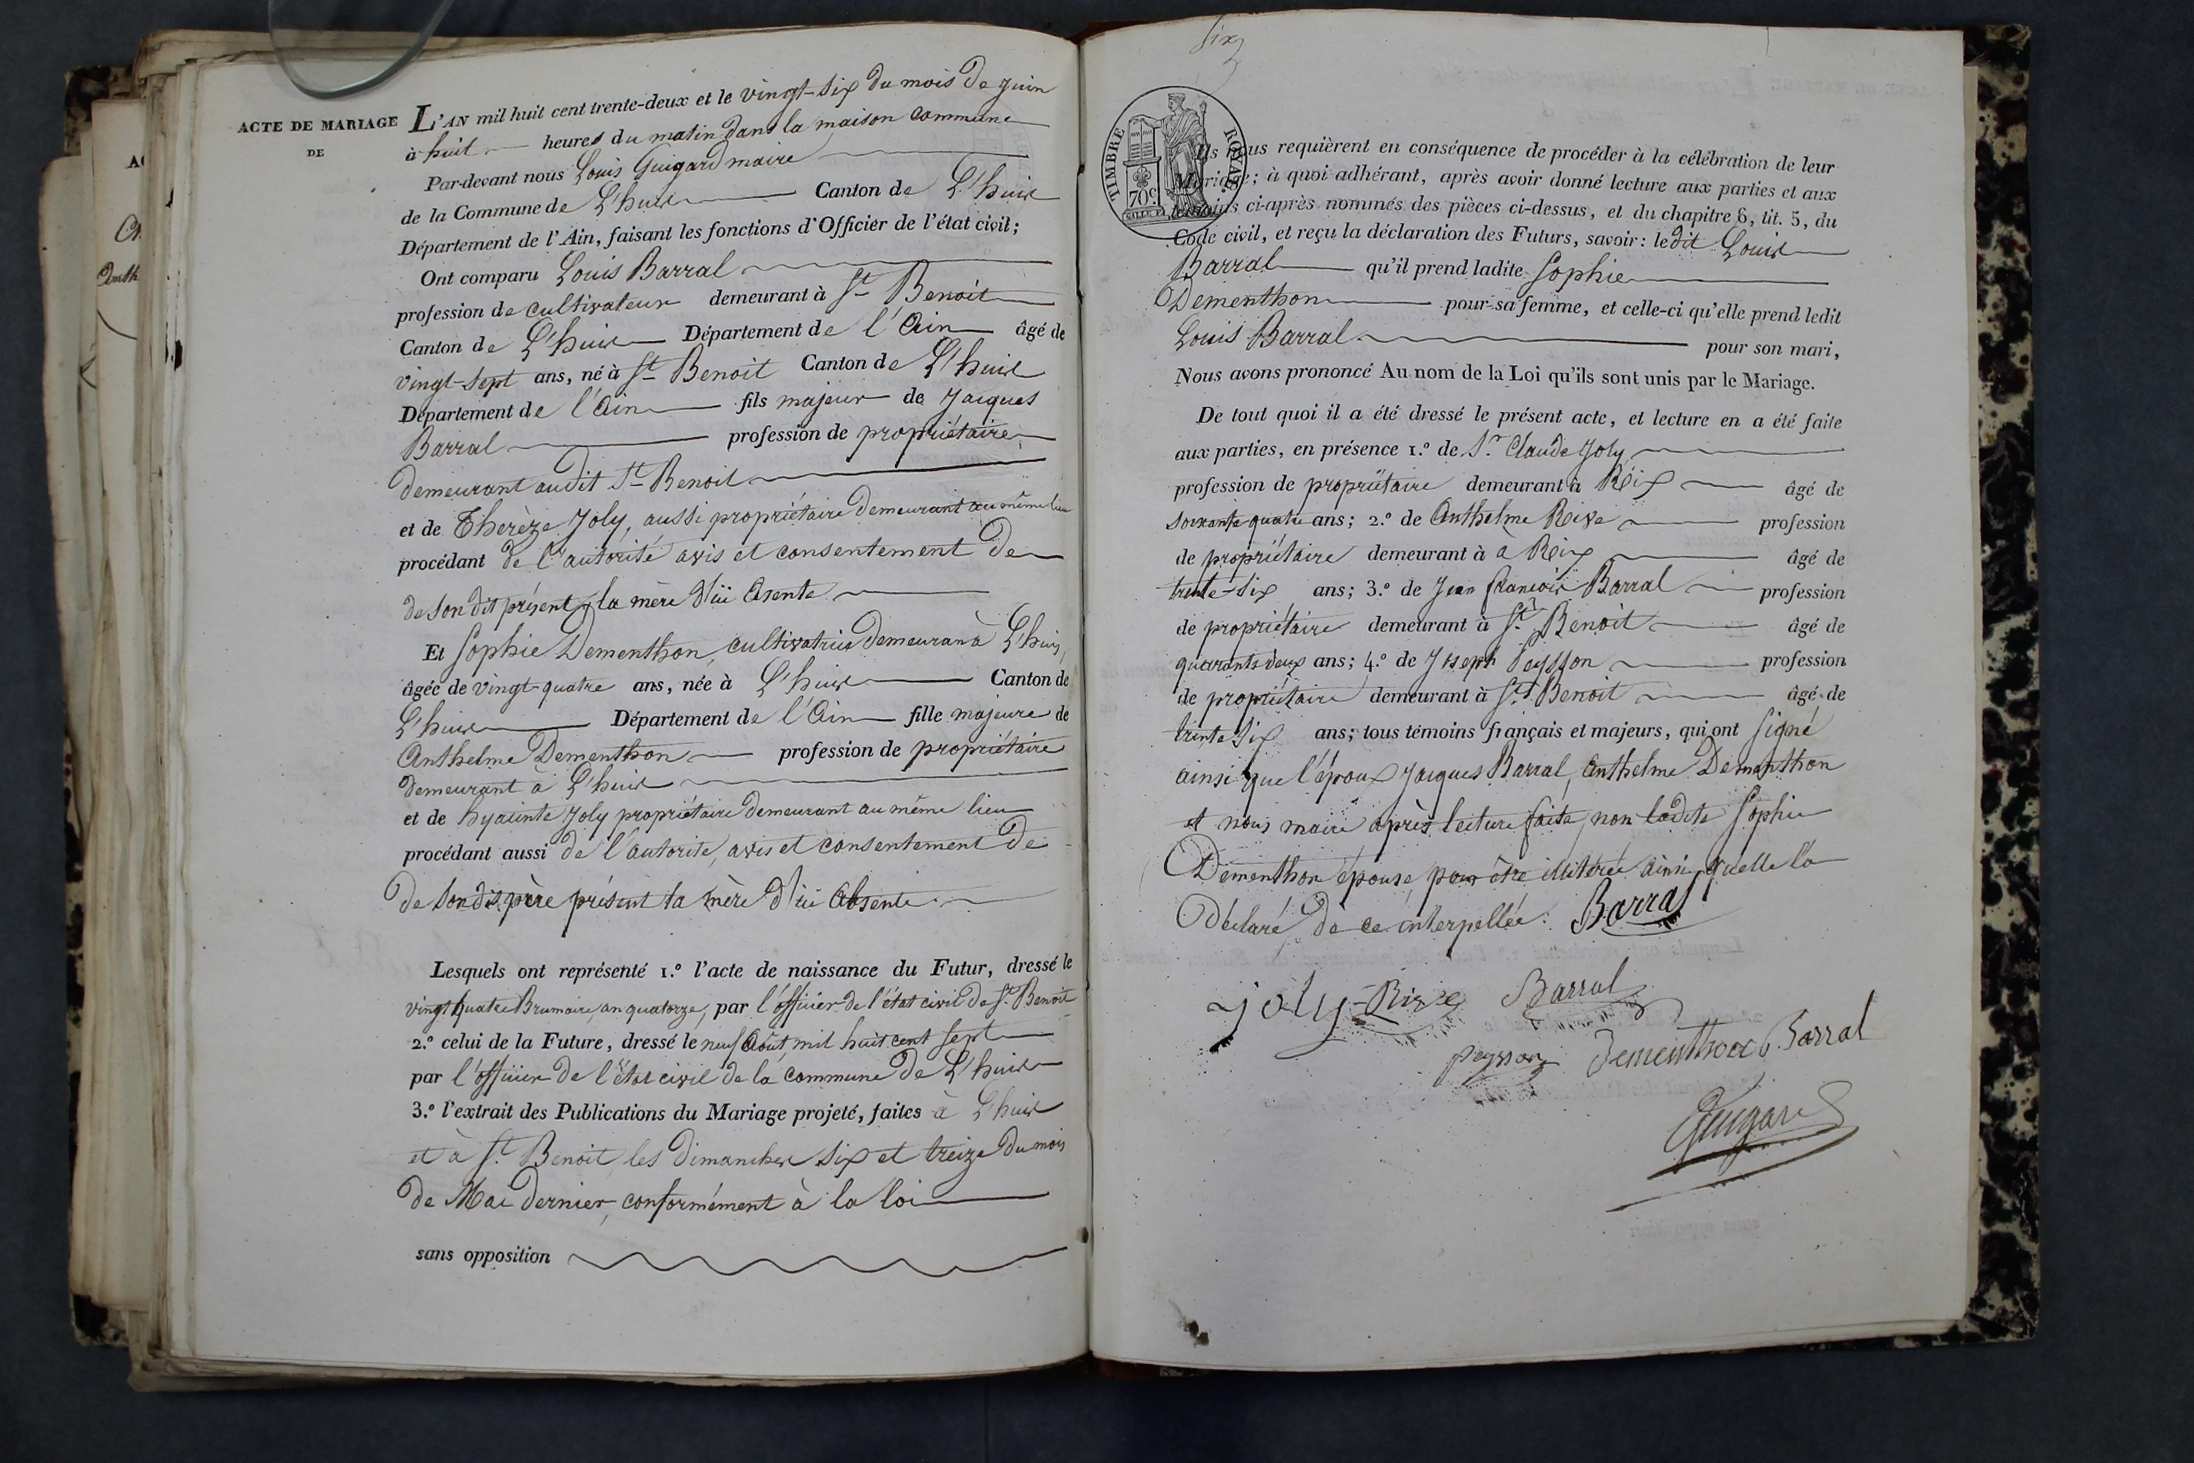 ACTE DE MARIAGE
DE
L'AN mil huit cent trente-deux et le vingt-six du mois de juin
à huit heures du matin dans la maison commune
Par-devant nous Louis Guigard maire
de la Commune de L'huis Canton de L'huis
Département de l'Ain, faisant les fonctions d'Officier de l'état civil;
Ont comparu Louis Barral
profession de cultivateur demeurant à St Benoit
Canton de L'huis Département de l'Ain âgé de
vingt-sept ans, né à St Benoit Canton de L'huis
Département de l'Ain fils majeur de Jacques
Barral profession de propriétaire
demeurant audit St Benoit
et de Therèze Joly, aussi propriétaire demeurant au même lieu
procédant de l'autorité avis et consentement de
de son dit présent, la mère d'ici absente
Et Sophie Dementhon, cultivatrice demeuran à L'huis,
âgée de vingt-quatre ans, née à L'huis Canton de
L'huis Département de l'Ain fille majeure de
Anthelme Dementhon profession de propriétaire
demeurant à L'huis
et de hyacinte Joly propriétaire demeurant au même lieu
procédant aussi de l'autorité, avis et consentement de
de son dit père présent la mère d'ici absente
Lesquels ont représenté 1.º l'acte de naissance du Futur, dressé le
vingt quatre Brumaire, an quatorze, par l'officier de l'état civil de St Benoit
2.º celui de la Future, dressé le neuf Août mil huit cent sept
par l'officier de l'état civil de la commune de L'huis
3.º l'extrait des Publications du Mariage projeté, faites à L'huis
et à St Benoit, les dimanches six et treize du mois
de Mai dernier, conformément à la loi
sans opposition
six
TIMBRE ROYAL
70c
Ils nous requièrent en conséquence de procéder à la célébration de leur
Mariage; à quoi adhérant, après avoir donné lecture aux parties et aux
témoins ci-après nommés des pièces ci-dessus, et du chapitre 6, tit. 5, du
Code civil, et reçu la déclaration des Futurs, savoir: ledit Louis
Barral qu'il prend ladite Sophie
Dementhon pour sa femme, et celle-ci qu'elle prend ledit
Louis Barral pour son mari,
Nous avons prononcé Au nom de la Loi qu'ils sont unis par le Mariage.
De tout quoi il a été dressé le présent acte, et lecture en a été faite
aux parties, en présence 1.º de Sr. Claude Joly
profession de propriétaire demeurant à Rix âgé de
soixante quatre ans; 2.º de Anthelme Rive profession
de propriétaire demeurant à à Rix âgé de
trente-six ans; 3.º de Jean françois Barral profession
de propriétaire demeurant à St Benoit âgé de
quarante deux ans; 4.º de Joseph Peysson profession
de propriétaire demeurant à St Benoit âgé de
trente six ans; tous témoins français et majeurs, qui ont signé
ainsi que l'époux, Jacques Barral, Anthelme Dementhon
et nous maire après lecture faite, non ladite Sophie
Dementhon épouse, pour être illitérée ainsi quelle l'a
déclaré, de ce interpellée. Barral
joly Rive Barral
peysson Dementhon Barral
Guigard